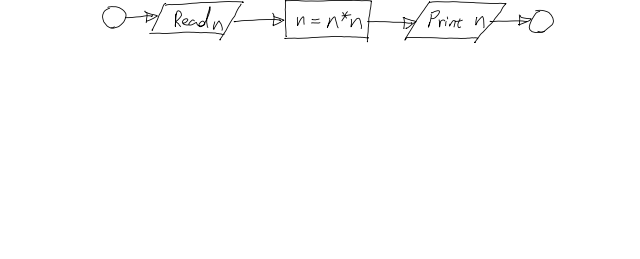 Read n
n = n*n
Print n